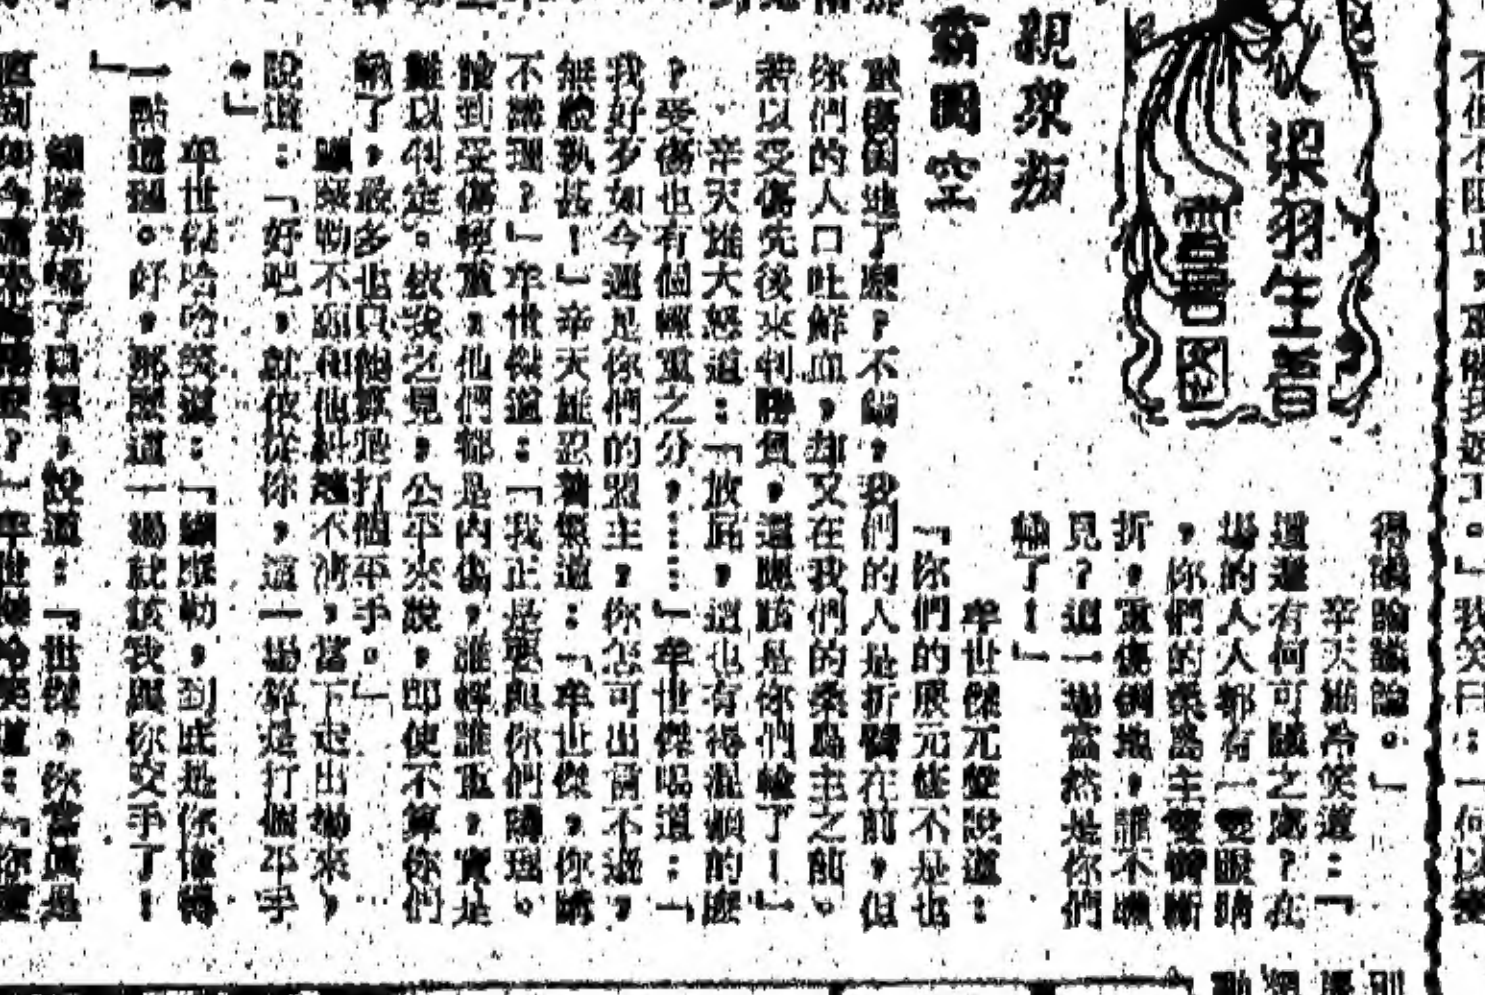 不但不阻止，重催我返了。」我笑曰：
梁羽生著
雲君圖
親衆叛
霸圖空
得議論議論。」
辛天雄冷笑道：「
這還有何可議之處？在
場的人人都有一雙眼睛
，你們的桑島主雙臂斷
折，重傷倒地，誰不瞧
見？這一場當然是你們
輸了！」
牟世傑亢聲說道：
「你們的展元修不是也
重傷倒地了麼？不錯，我們的人是折臂在前，但
你們的人口吐鮮血，却又在我們的桑島主之前。
若以受傷先後來判勝負，這應該是你們輸了！」
辛天雄大怒道：「放屁，這也有得混賴的麼
？受傷也有個輕重之分，……」牟世傑喝道：「
我好歹如今還是你們的盟主，你怎可出言不遜，
無禮孰甚！」辛天雄忍着氣道：「牟世傑，你講
不講理？」牟世傑道：「我正是要與你們講理。
說到受傷輕重，他們都是內傷，誰輕誰重，實是
難以判定。依我之見，公平來說，即使不算你們
輸了，最多也只能算是打個平手。」
鐵摩勒不願和他糾纏不清，當下走出場來，
說道：「好吧，就依從你，這一場算是打個平手
。」
牟世傑哈哈笑道：「鐵摩勒，到底是你懂得
一點道理。好，那麼這一場就該我與你交手了！
」
鐵摩勒嘆了口氣，說道：「世傑，你當真是
直到如今還？」牟世傑冷笑道：「你要